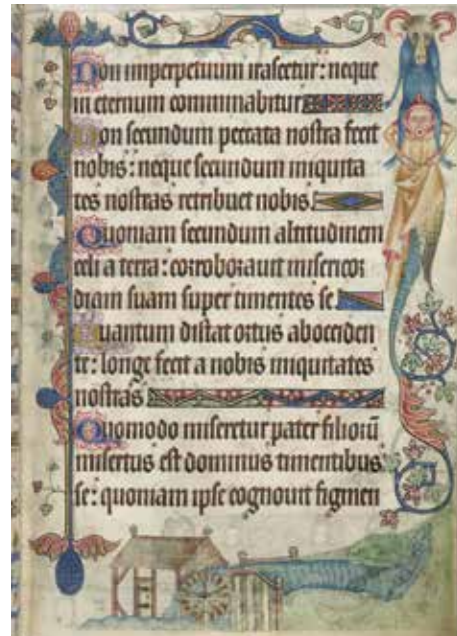 Non imperpetuum irascetur: neque
in eternum comminabitur
Non secundum peccata nostra fecit
nobis: neque secundum iniquita
tes nostras retribuet nobis.
Quoniam secundum altitudinem
celi a terra: corroboravit misericor
diam suam super timentes se
Quantum distat ortus ab occiden
te: longe fecit a nobis iniquitates
nostras
Quomodo miseretur pater filiorū
misertus est dominus timentibus
se: quoniam ipse cognovit figmen